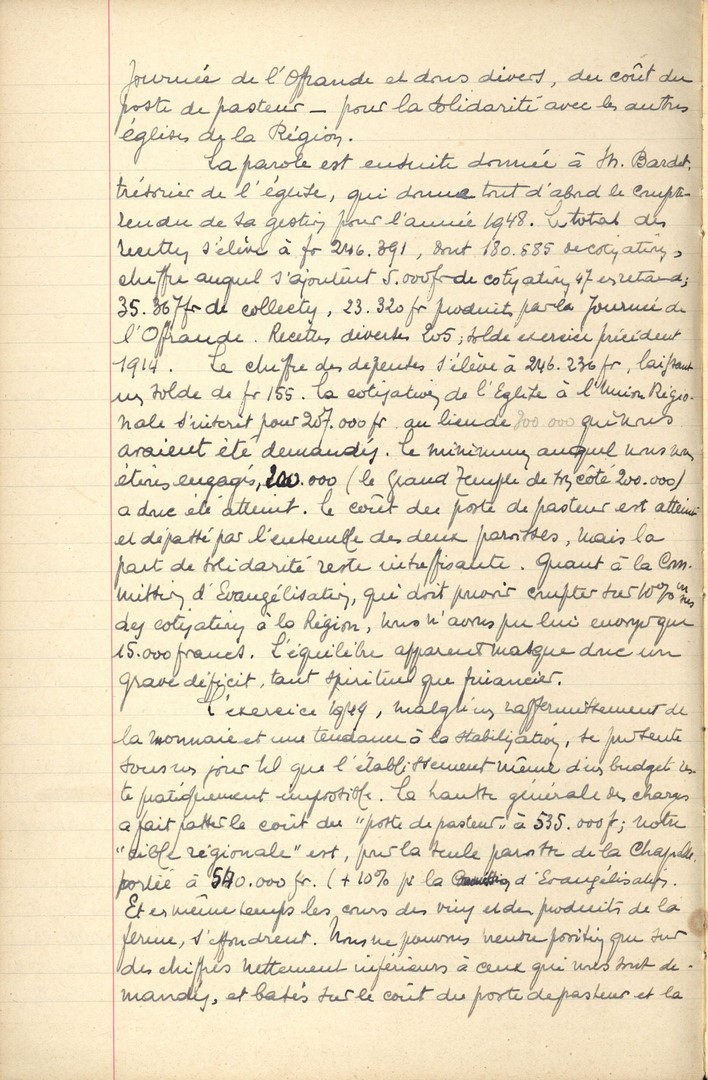 Journée de l'Offrande et dons divers, du coût du
poste de pasteur — pour la solidarité avec les autres
églises de la Région.
La parole est ensuite donnée à M. Bardet,
trésorier de l'église, qui donne tout d'abord le compte-
rendu de sa gestion pour l'année 1948. Le total des
recettes s'élève à fr 246.391, dont 180.585 de cotisations,
chiffre auquel s'ajoutent 5.000 fr de cotisations 47 en retard;
35.367 fr de collectes, 23.320 fr produits par la Journée de
l'Offrande. Recettes diverses 205; solde exercice précédent
1914. Le chiffre des dépenses s'élève à 246.236 fr, laissant
un solde de fr 155. La cotisation de l'Eglise à l'Union Régio-
nale s'inscrit pour 207.000 fr au lieu de 300 000 qui nous
avaient été demandés. Le minimum auquel nous nous
étions engagés, 200.000 (le Grand Temple de son côté 200.000)
a donc été atteint. Le coût du poste de pasteur est atteint
et dépassé par l'ensemble des deux paroisses, mais la
part de solidarité reste insuffisante. Quant à la Com-
mission d'Evangélisation, qui doit pouvoir compter sur 10%
des cotisations à la Région, nous n'avons pu lui envoyer que
15.000 francs. L'équilibre apparent masque donc un
grave déficit, tant spirituel que financier.
L'exercice 1949, malgré un raffermissement de
la monnaie et une tendance à la stabilisation, se présente
sous un jour tel que l'établissement même d'un budget res-
te pratiquement impossible. La hausse générale des charges
a fait passer le coût du "poste de pasteur" à 535.000 f; notre
"cible régionale" est, pour la seule paroisse de la Chapelle,
portée à 540.000 fr. (+10% pr la Commission d'Evangélisation.
Et en même temps les cours des vins et des produits de la
ferme, s'effondrent. Nous ne pouvons prendre position que sur
des chiffres nettement inférieurs à ceux qui nous sont de-
mandés, et basés sur le coût du poste de pasteur et la